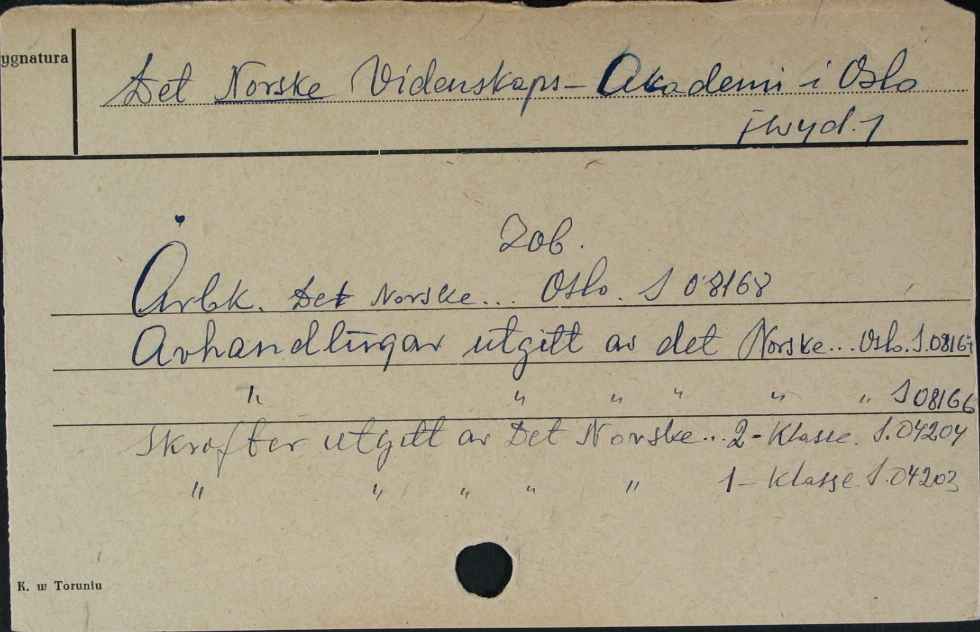 ygnatura
Det Norske Videnskaps-Akademi i Oslo
i wyd. 1
Zob.
Årbk. Det Norske... Oslo. S 08168
Avhandlingar utgitt av det Norske... Oslo. S.08167
" " " " " " S 08166
Skrofter utgitt av Det Norske... 2-Klasse. S.04204
" " " " " 1-Klasse S.04203
K. w Toruniu